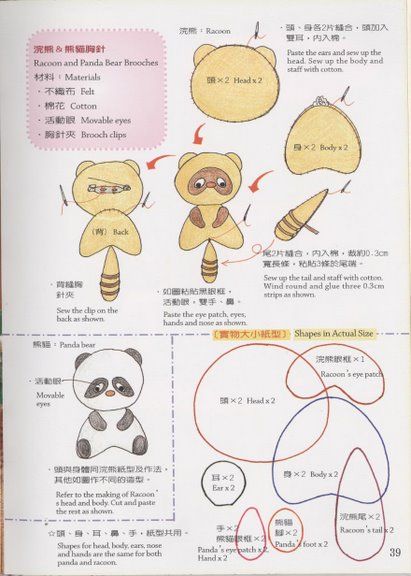 浣熊&熊貓胸針
Racoon and Panda Bear Brooches
材料：Materials
・不織布 Felt
・棉花 Cotton
・活動眼 Movable eyes
・胸針夾 Brooch clips
浣熊：Racoon
頭×2 Head x 2
・頭、身各2片縫合，頭加入
雙耳，內入棉。
Paste the ears and sew up the
head. Sew up the body and
staff with cotton.
身×2 Body x 2
(背) Back
・背縫胸
針夾
Sew the clip on the
back as shown.
・如圖粘貼黑眼框，
活動眼，雙手、鼻。
Paste the eye patch, eyes,
hands and nose as shown.
尾2片縫合，內入棉，裁約0.3cm
寬長條，粘貼3條於尾端。
Sew up the tail and staff with cotton.
Wind round and glue three 0.3cm
strips as shown.
熊貓：Panda bear
・活動眼
Movable
eyes
・頭與身體同浣熊紙型及作法，
其他如圖作不同的造型。
Refer to the making of Racoon'
s head and body. Cut and paste
the rest as shown.
☆頭、身、耳、鼻、手，紙型共用。
Shapes for head, body, ears, nose
and hands are the same for both
panda and racoon.
〔實物大小紙型〕 Shapes in Actual Size
浣熊眼框×1
Racoon's eye patch
頭×2 Head x 2
身×2 Body x 2
耳×2
Ear x 2
手×2
熊貓眼框×2
Panda's eye patch x 2,
Hand x 2
熊貓
腳×2
Panda's foot x 2
浣熊尾×2
Racoon's tail x 2
39